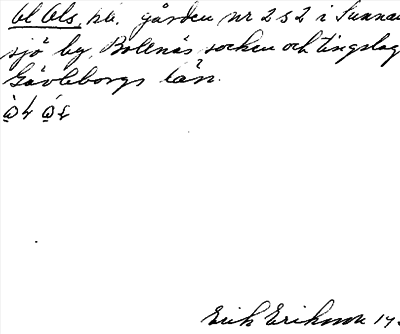 Ol Ols, på gården nr 2 s 2 i Sunnan
sjö by, Bollnäs socken och tingslag
Gävleborgs län.
Erik Eriksson 17